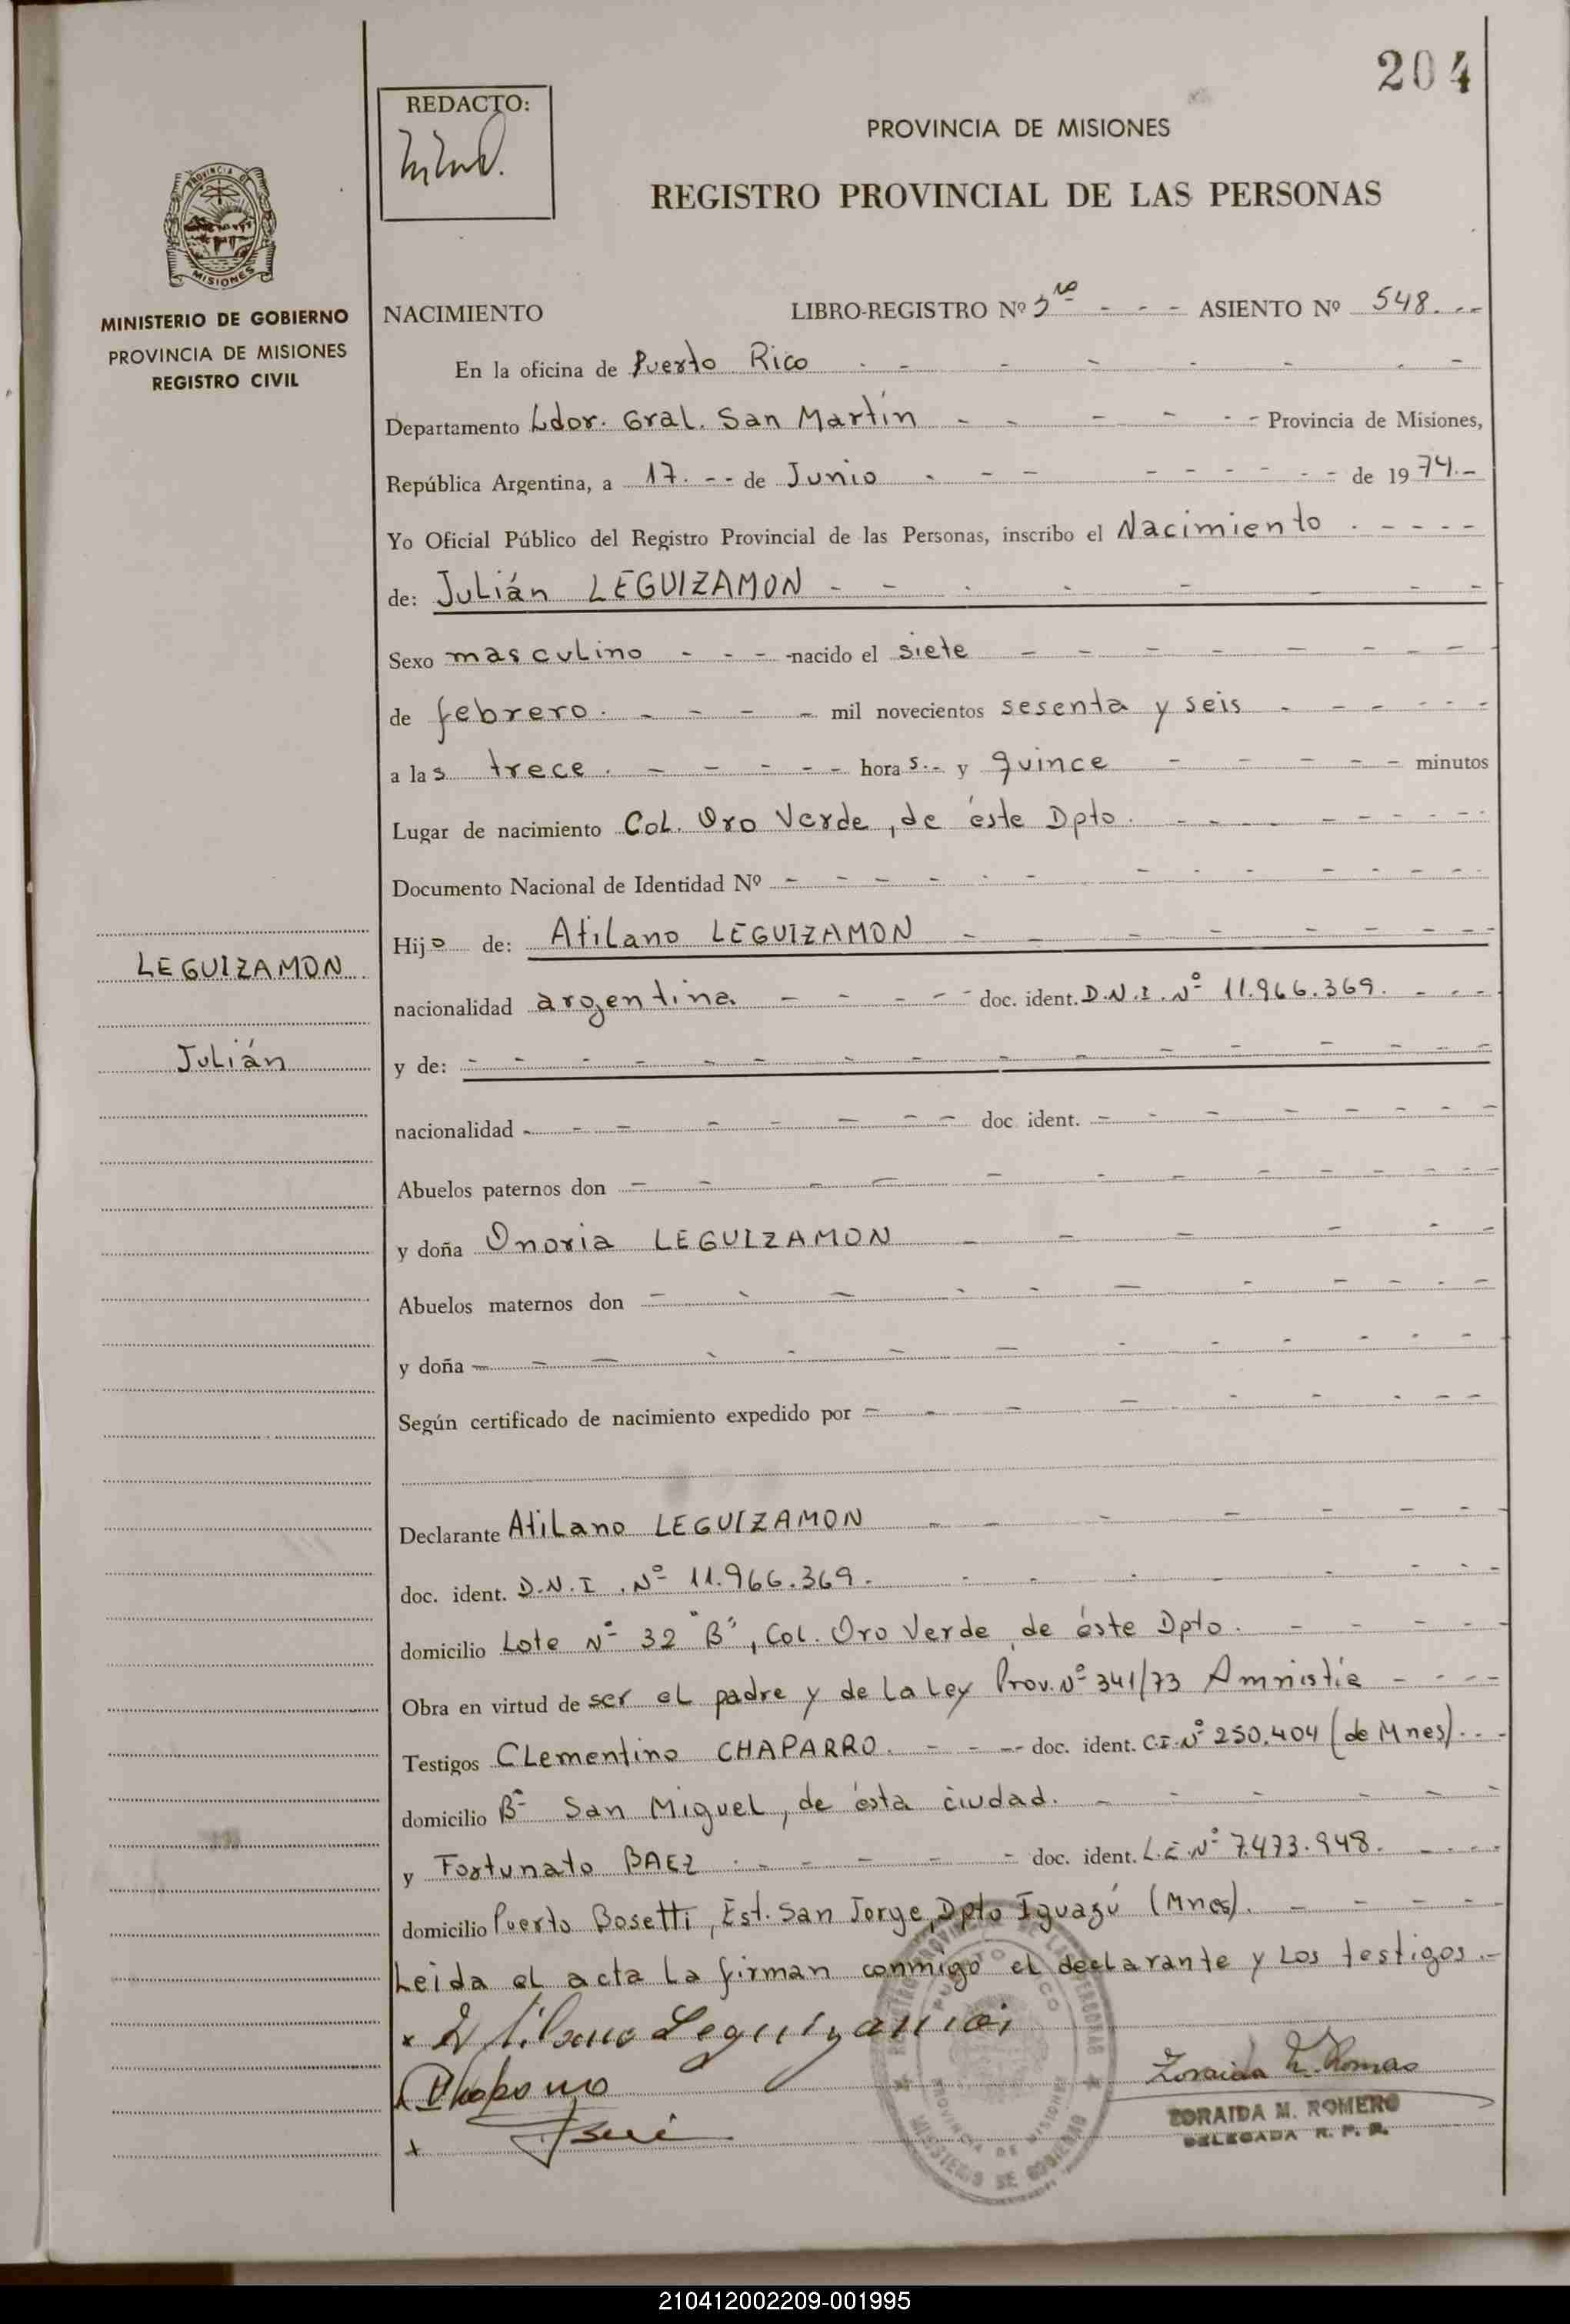 204
REDACTO:
PROVINCIA DE MISIONES
REGISTRO PROVINCIAL DE LAS PERSONAS
PROVINCIA DE
MISIONES
MINISTERIO DE GOBIERNO
PROVINCIA DE MISIONES
REGISTRO CIVIL
NACIMIENTO LIBRO-REGISTRO Nº - - - ASIENTO Nº 548. - -
En la oficina de Puerto Rico
Departamento Ldor. Gral. San Martín - - - - - - Provincia de Misiones,
República Argentina, a 17. - - de Junio - - - - - - - - de 1974.-
Yo Oficial Público del Registro Provincial de las Personas, inscribo el Nacimiento - - - -
de: Julián LEGUIZAMON - - - - - - -
Sexo masculino - - - - nacido el siete - - - - - - - -
de febrero. - - - - - mil novecientos sesenta y seis - - - - - -
a las trece. - - - - - hora s.- y quince - - - - - minutos
Lugar de nacimiento Col. Oro Verde, de éste Dpto. - - - - - - - -
Documento Nacional de Identidad Nº - - - - - - - - - - - -
LEGUIZAMON
Julián
Hijo de: Atilano LEGUIZAMON - - - - - - - -
nacionalidad argentina - - - - - doc. ident. D.N.I. Nº 11.966.369. - - -
y de: - - - - - - - - - - - - - - -
nacionalidad - - - - - - - - doc. ident. - - - - - - - -
Abuelos paternos don - - - - - - - - - - - - -
y doña Onoria LEGUIZAMON - - - - - -
Abuelos maternos don - - - - - - - - - - - -
y doña - - - - - - - - - - - - -
Según certificado de nacimiento expedido por - - - - - - - - -
Declarante Atilano LEGUIZAMON - - - - - - -
doc. ident. D.N.I. Nº 11.966.369. - - - - - - - -
domicilio Lote Nº 32 "B", Col. Oro Verde de éste Dpto. - - - - -
Obra en virtud de ser el padre y de la Ley Prov. Nº 341/73 Amnistía - - - -
Testigos Clementino CHAPARRO. - - - - doc. ident. C.I. Nº 250.404 (de Mnes). - -
domicilio Bº San Miguel, de ésta ciudad. - - - - - -
y Fortunato BAEZ - - - - - - doc. ident. L.E. Nº 7.473.948. - - - -
domicilio Puerto Bosetti, Est. San Jorge, Dpto Iguazú (Mnes). - - - - -
Leida el acta la firman conmigo el declarante y los testigos.-
x Atilano Leguizamon
x
Zoraida M. Romero
ZORAIDA M. ROMERO
DELEGADA R. P. P.
REGISTRO PROVINCIAL DE LAS PERSONAS
PUERTO RICO
PROVINCIA DE MISIONES
MINISTERIO DE GOBIERNO
210412002209-001995